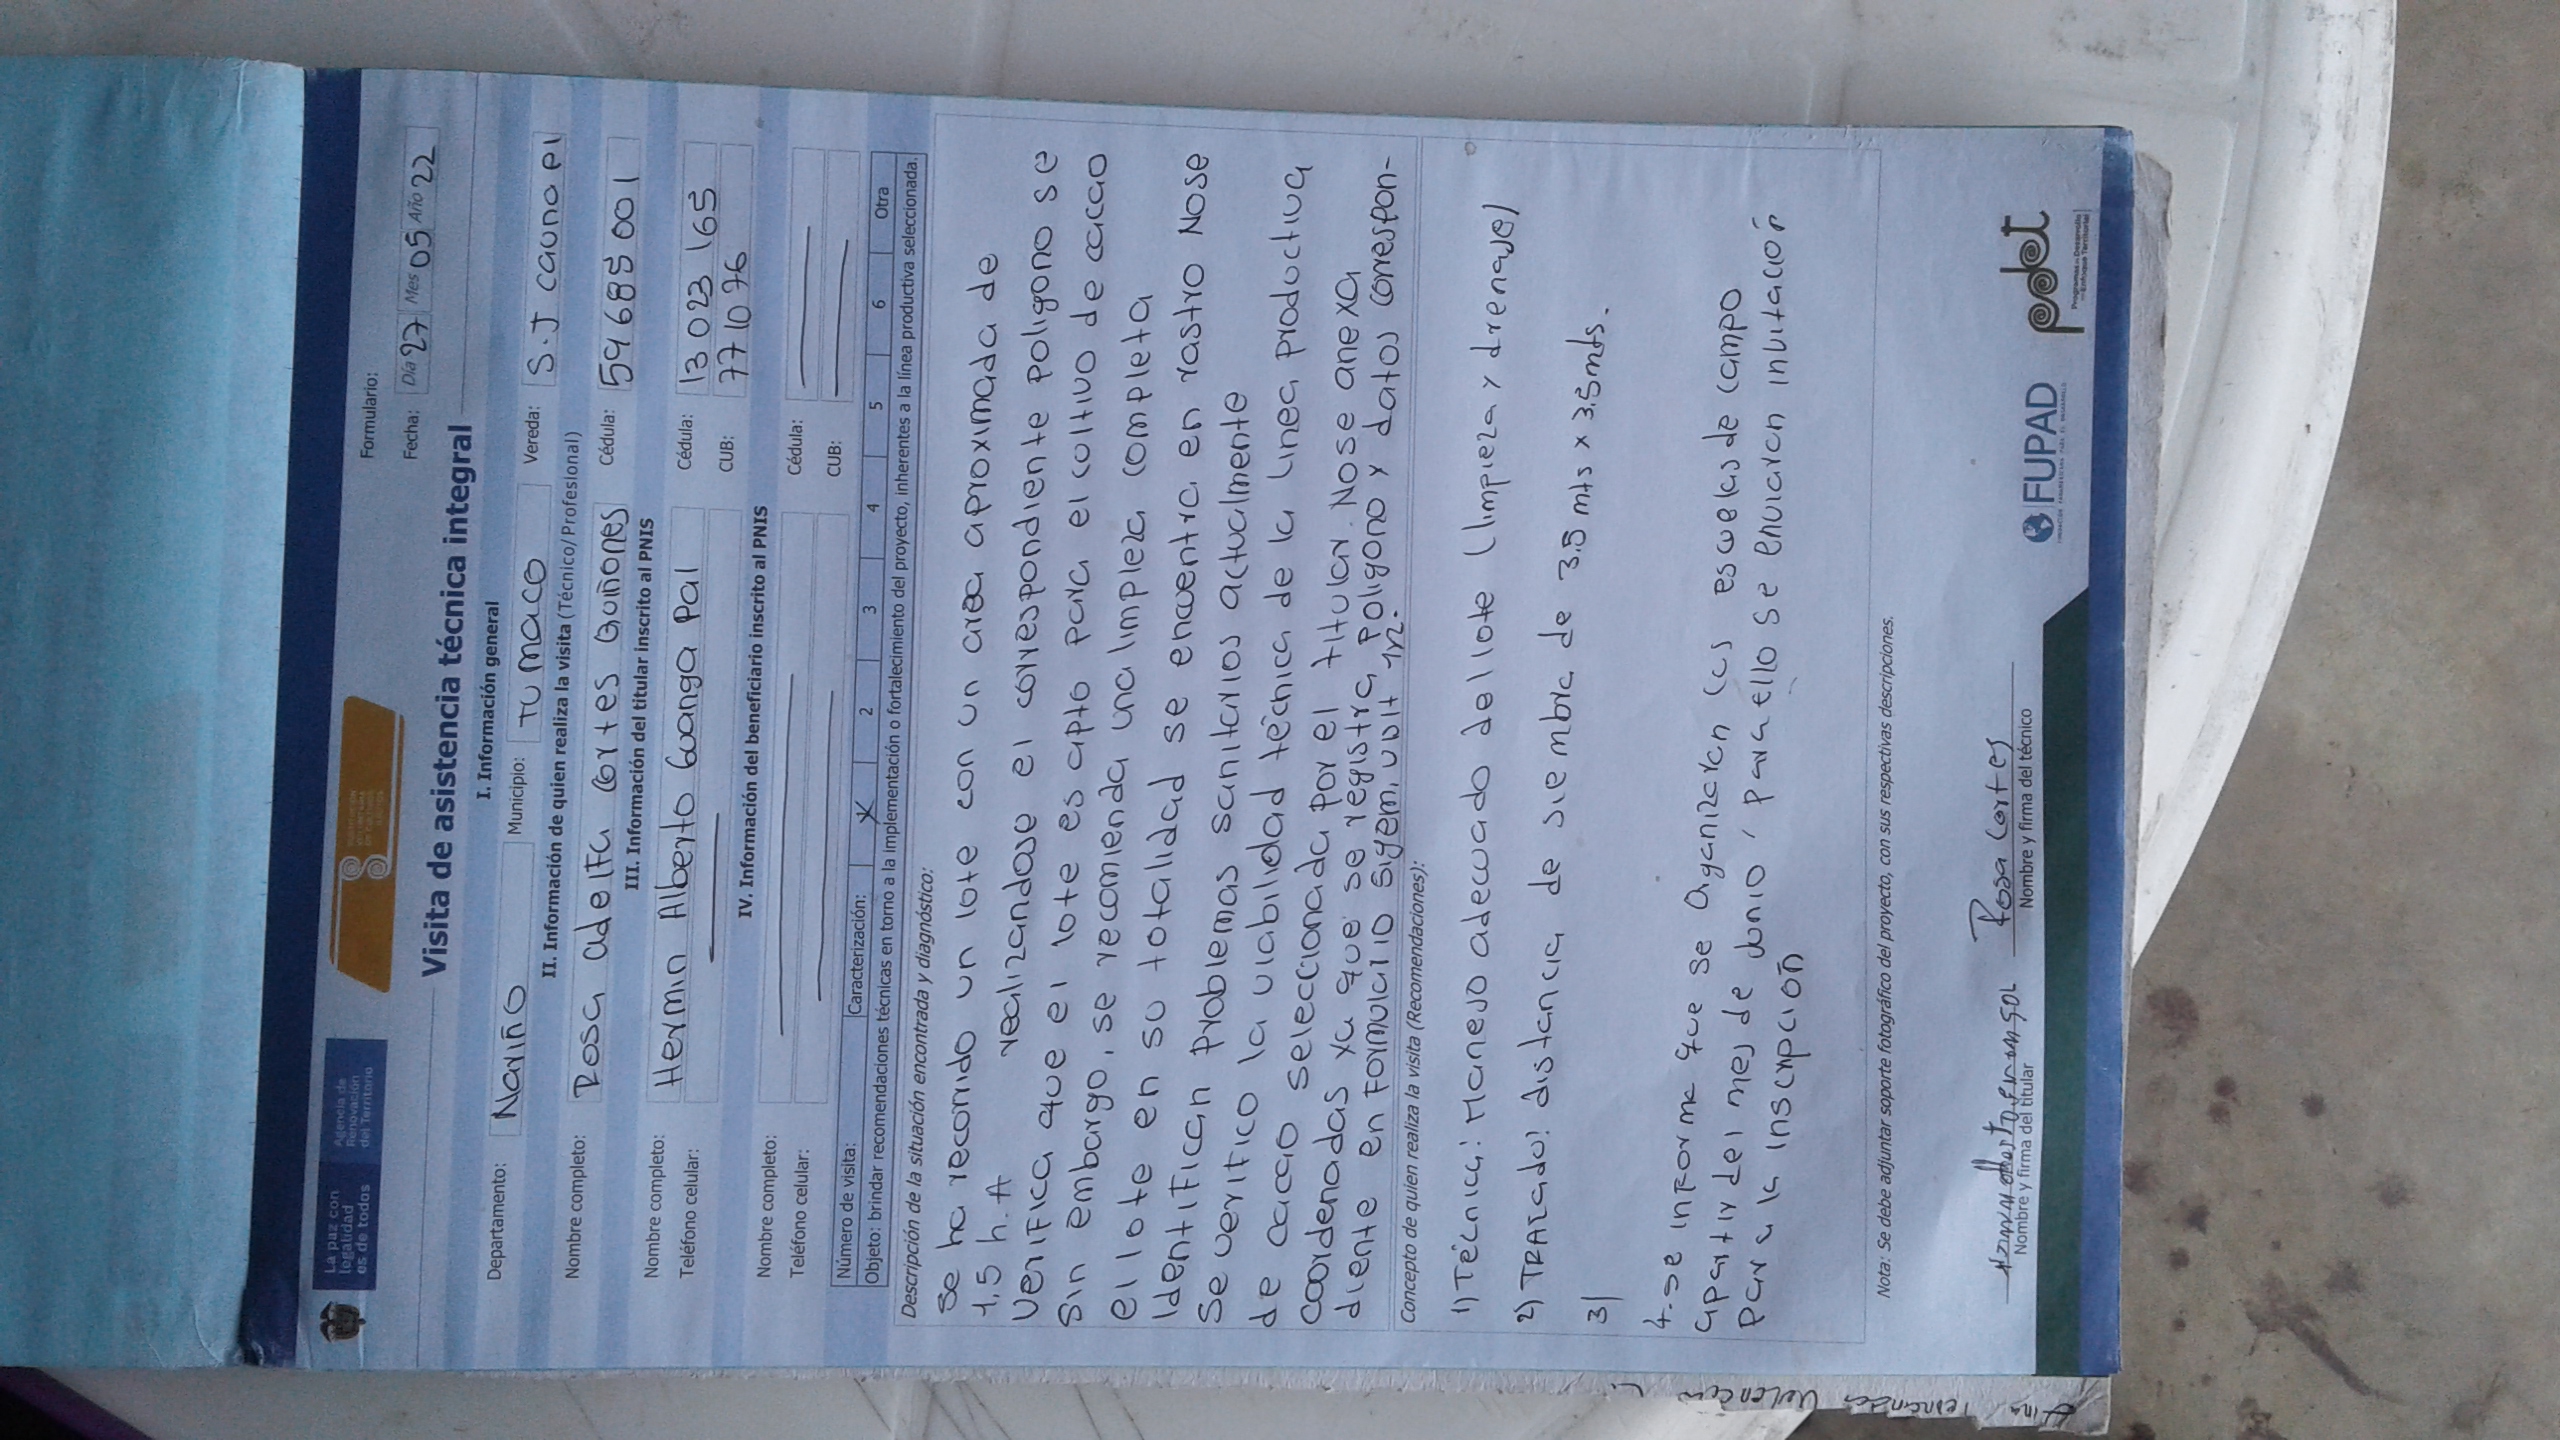 La paz con
legalidad
es de todos
Agencia de
Renovación
del Territorio
Formulario:
Fecha: Día 27 Mes 05 Año 22
Visita de asistencia técnica integral
I. Información general
Departamento: Nariño Municipio: Tumaco Vereda: S.J cauno pl
II. Información de quien realiza la visita (Técnico/Profesional)
Nombre completo: Rosa adelfa Cortes Quiñones Cédula: 59 685 001
III. Información del titular inscrito al PNIS
Nombre completo: Hermin Alberto Guanga Pal Cédula: 13 023 165
Teléfono celular: CUB: 77 10 76
IV. Información del beneficiario inscrito al PNIS
Nombre completo: Cédula:
Teléfono celular: CUB:
Número de visita: Caracterización: X 2 3 4 5 6 Otra
Objeto: brindar recomendaciones técnicas en torno a la implementación o fortalecimiento del proyecto, inherentes a la línea productiva seleccionada.
Descripción de la situación encontrada y diagnóstico:
Se ha recorrido un lote con un area aproximada de
1,5 h.A realizandose el correspondiente poligono se
verifica que el lote es apto para el cultivo de cacao
Sin embargo, se recomienda una limpieza completa
el lote en su totalidad se encuentra en rastro Nose
Identifican problemas sanitarios actualmente
Se verifico la viabilidad técnica de la linea productiva
de cacao seleccionada por el titular. Nose anexa
coordenadas ya que se registra poligono y datos correspon-
diente en Formulario sigem, ubit
Concepto de quien realiza la visita (Recomendaciones):
1) Técnica: Manejo adecuado del lote (limpieza y drenaje)
2) TRAZado: distancia de siembra de 3.5 mts x 3.5 mts.
3)
4. se informa que se Organizaran las escuelas de campo
apartir del mes de Junio, para ello se enviaran invitación
para la inscripción
Nota: Se debe adjuntar soporte fotográfico del proyecto, con sus respectivas descripciones.
Rosa Cortes
Nombre y firma del titular Nombre y firma del técnico
FUPAD
pdet
Programas de Desarrollo
con Enfoque Territorial